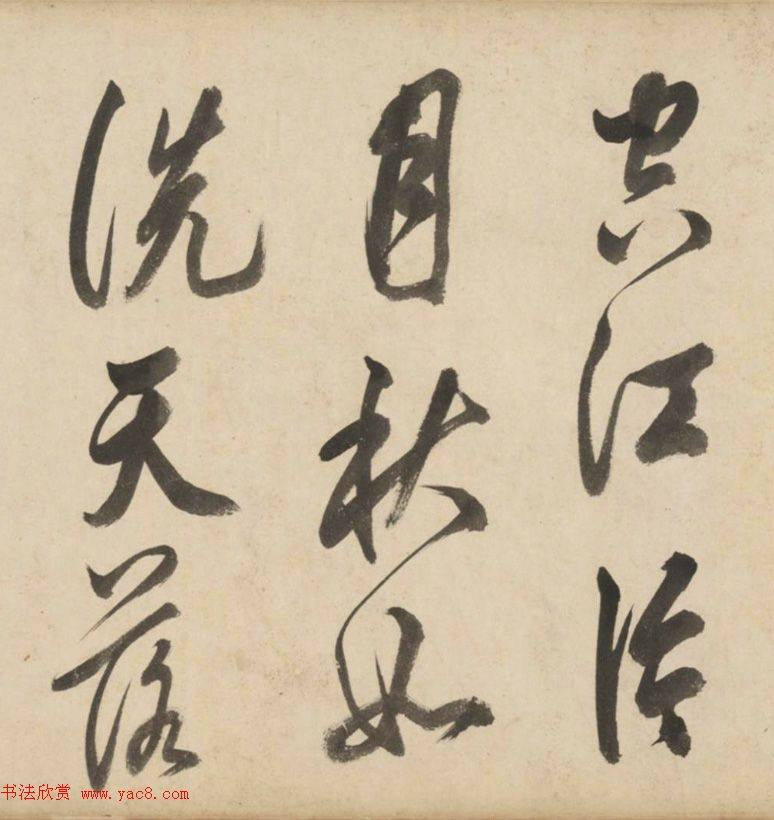 空江冷
月秋如
洗天落
书法欣赏 www.yac8.com